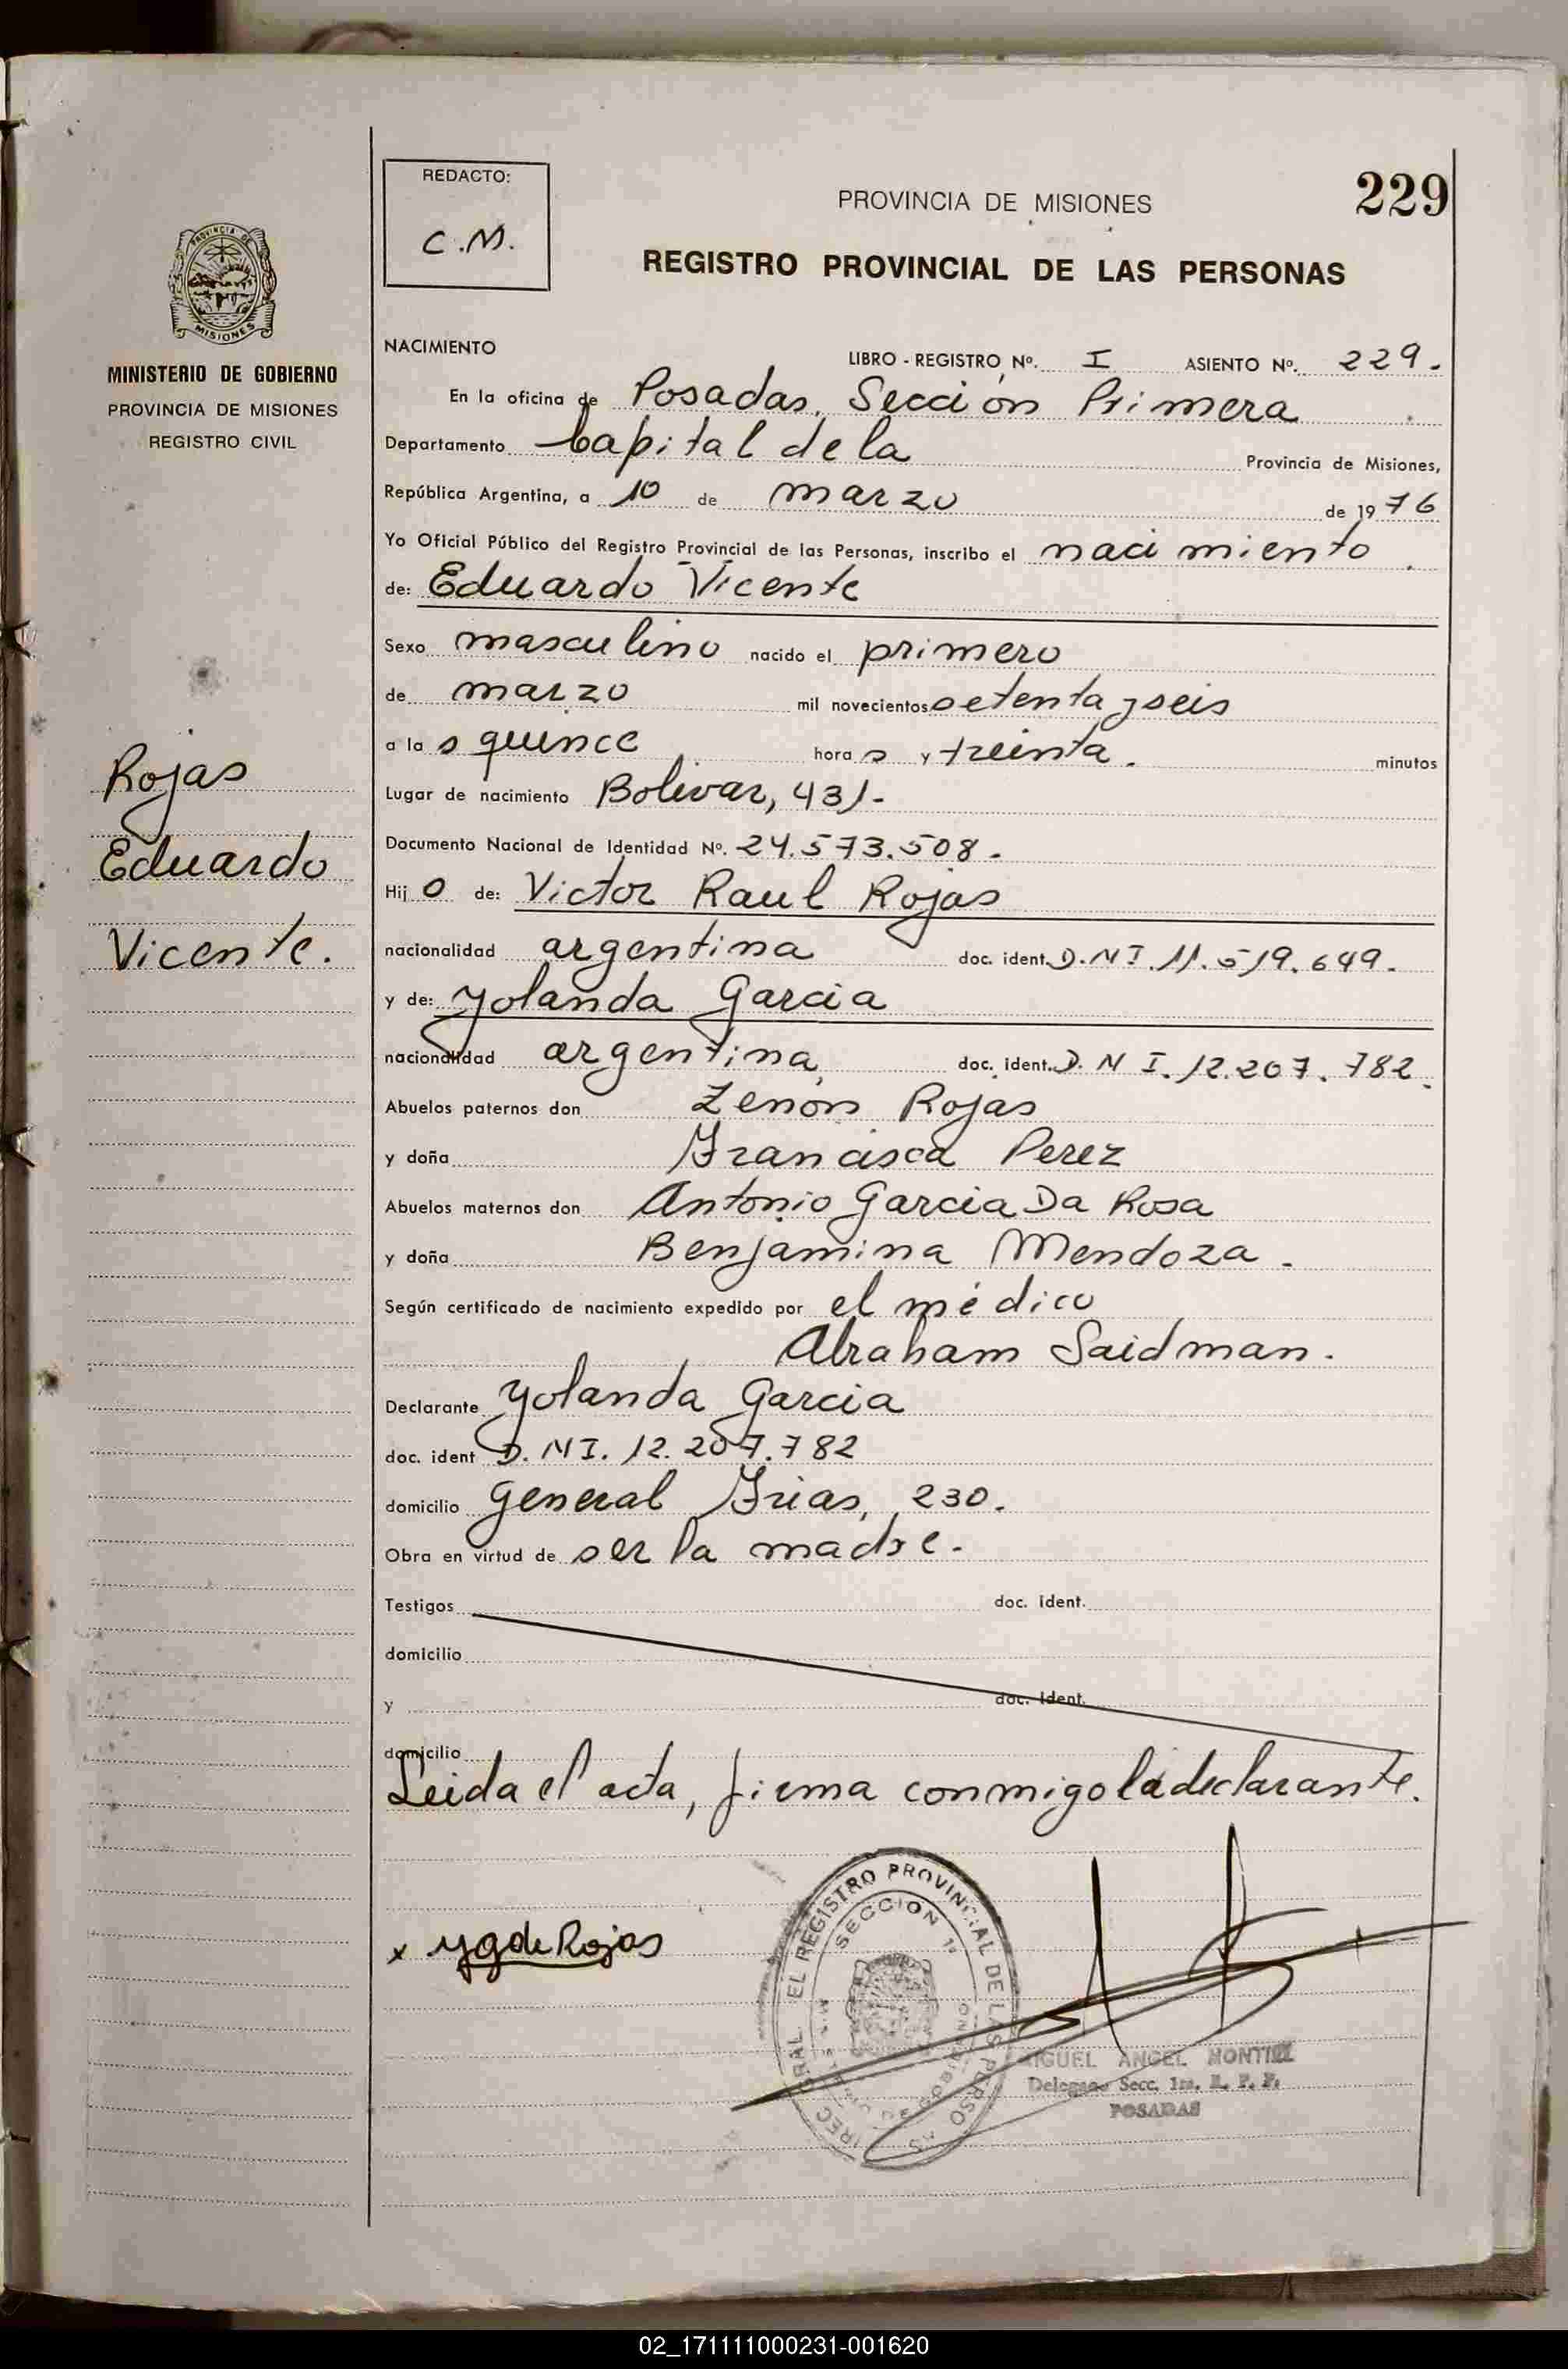 REDACTO:
C.M.
PROVINCIA DE MISIONES
229
REGISTRO PROVINCIAL DE LAS PERSONAS
PROVINCIA DE
MISIONES
MINISTERIO DE GOBIERNO
PROVINCIA DE MISIONES
REGISTRO CIVIL
Rojas
Eduardo
Vicente.
NACIMIENTO
LIBRO - REGISTRO Nº. I ASIENTO Nº. 229.
En la oficina de Posadas, Sección Primera
Departamento Capital de la Provincia de Misiones,
República Argentina, a 10 de marzo de 1976
Yo Oficial Público del Registro Provincial de las Personas, inscribo el nacimiento
de: Eduardo Vicente
Sexo masculino nacido el primero
de marzo mil novecientos setenta y seis
a las quince horas y treinta. minutos
Lugar de nacimiento Bolivar, 431.-
Documento Nacional de Identidad Nº. 24.573.508.
Hijo de: Victor Raul Rojas
nacionalidad argentina doc. ident. D.N.I. 11.519.649.
y de: Yolanda Garcia
nacionalidad argentina, doc. ident. D.N I. 12.207.782.
Abuelos paternos don Zenón Rojas
y doña Francisca Perez
Abuelos maternos don Antonio Garcia Da Rosa
y doña Benjamina Mendoza.
Según certificado de nacimiento expedido por el médico
Abraham Saidman.
Declarante Yolanda Garcia
doc. ident D.NI. 12.207.782
domicilio General Frias, 230.
Obra en virtud de ser la madre.
Testigos doc. ident.
domicilio
y doc. ident.
domicilio
Leida el acta, firma conmigo la declarante.
x YgdeRojas
REGISTRO PROVINCIAL DE LAS PERSO
SECCION 1ª
MIGUEL ANGEL MONTIEL
Delegado Secc. 1ra. R. P. P.
POSADAS
02_171111000231-001620